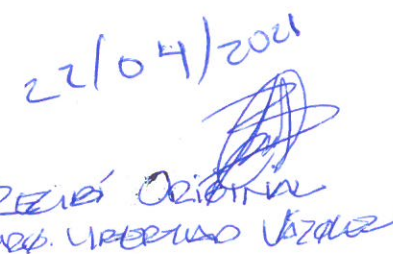 22/04/2021
RECIBÍ ORIGINAL
ARQ. LIBERTAD VÁZQUEZ